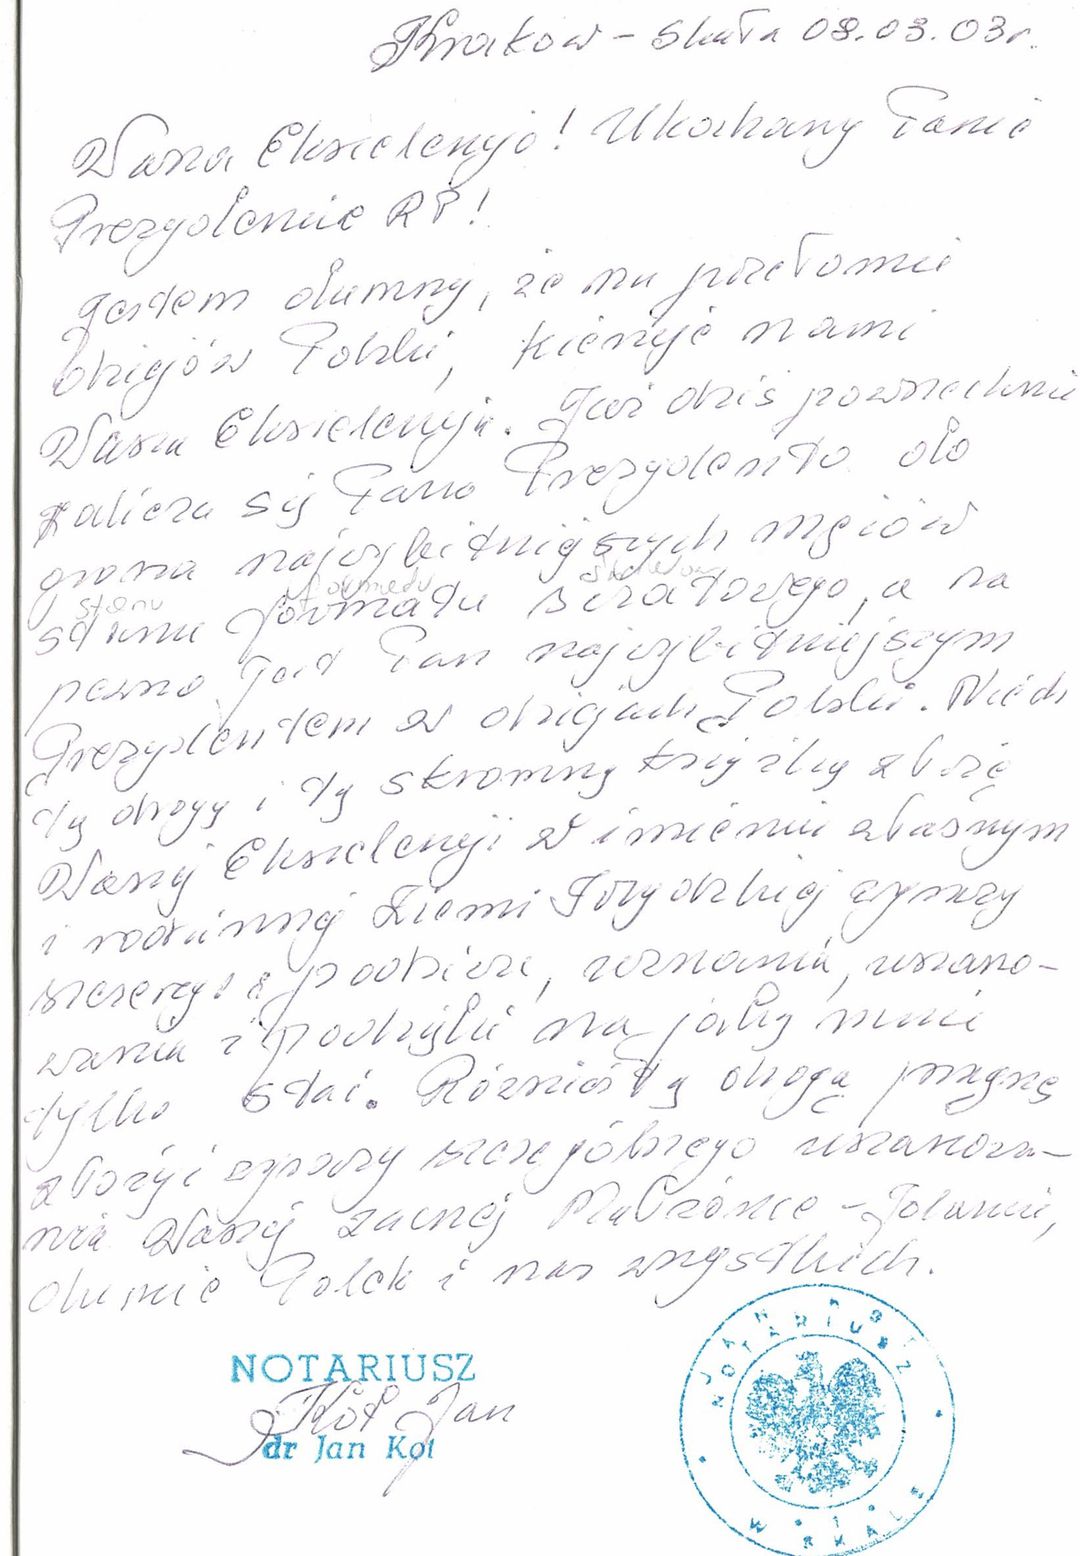 Kraków - Skała 08.03.03r.
Wasza Ekscelencjo! Ukochany Panie
Prezydencie RP!
Jestem dumny, że na przełomie
dziejów Polski, kieruje nami
Wasza Ekscelencja. Już dziś powszechnie
zalicza się Pana Prezydenta do
grona najwybitniejszych mężów
stanu formatu światowego, a na
stanu formatu światowego
pewno jest Pan najwybitniejszym
Prezydentem w dziejach Polski. Niech
tą drogą i tą skromną książką złożę
Waszej Ekscelencji w imieniu własnym
i rodzinnej Ziemi wyrazy
szczerego podziwu, uznania, uszano-
wania i na jaki mnie
tylko stać. Również tą drogą pragnę
złożyć wyrazy szczególnego uszanowa-
nia Waszej zacnej Małżonce - Jolancie,
dumie Polek i nas wszystkich.
NOTARIUSZ
Kot Jan
dr Jan Kot
JAN KOT
NOTARIUSZ
W SKALE